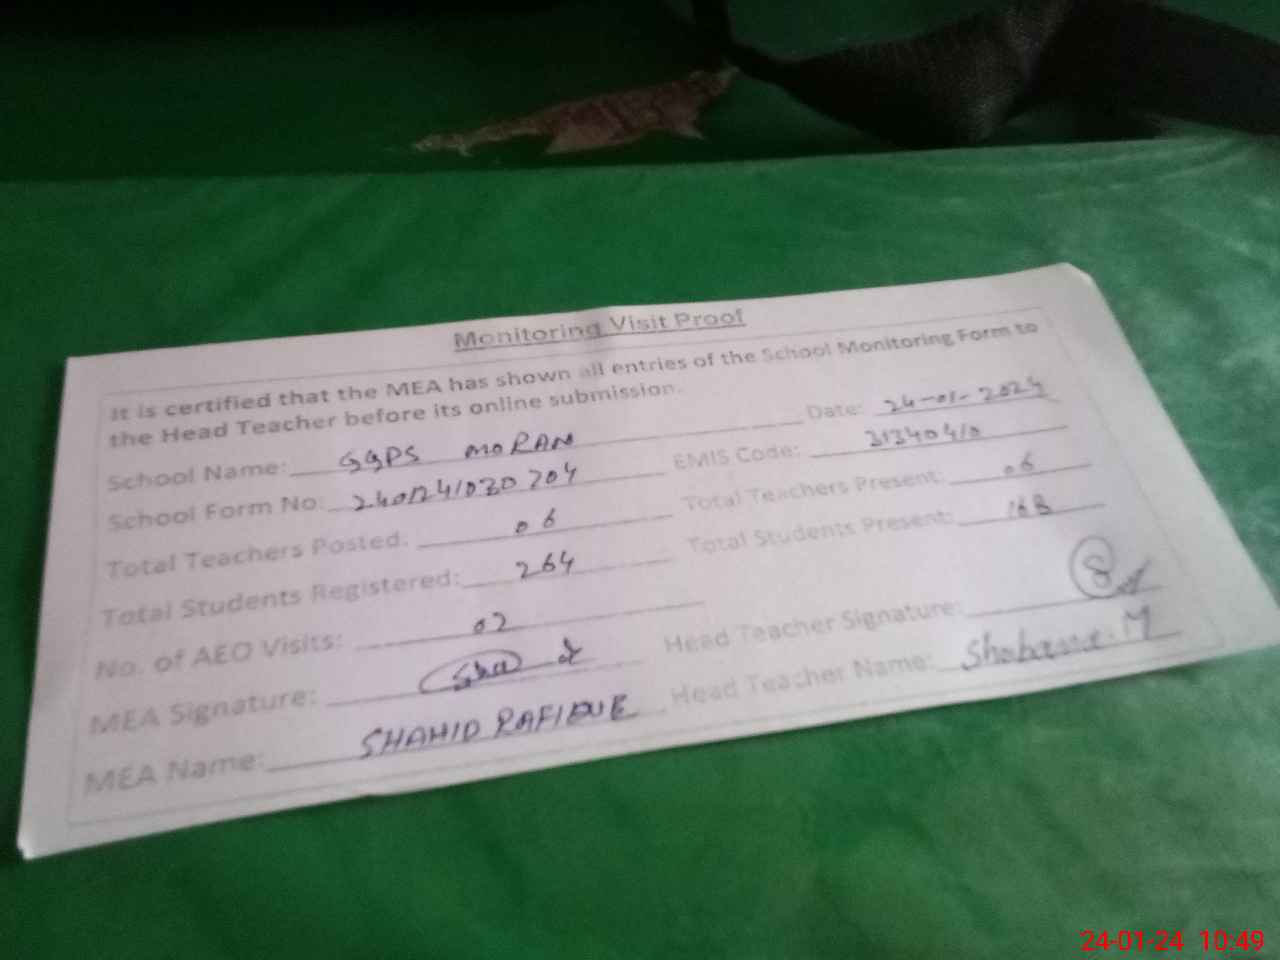 Monitoring Visit Proof
It is certified that the MEA has shown all entries of the School Monitoring Form to
the Head Teacher before its online submission.
School Name: GGPS MORAN Date: 24-01-2024
School Form No: EMIS Code: 31340410
Total Teachers Posted: 06 Total Teachers Present: 06
Total Students Registered: 264 Total Students Present: 168
No. of AEO Visits: 02
MEA Signature: Head Teacher Signature:
MEA Name: SHAHID RAFIQUE Head Teacher Name:
24-01-24 10:49